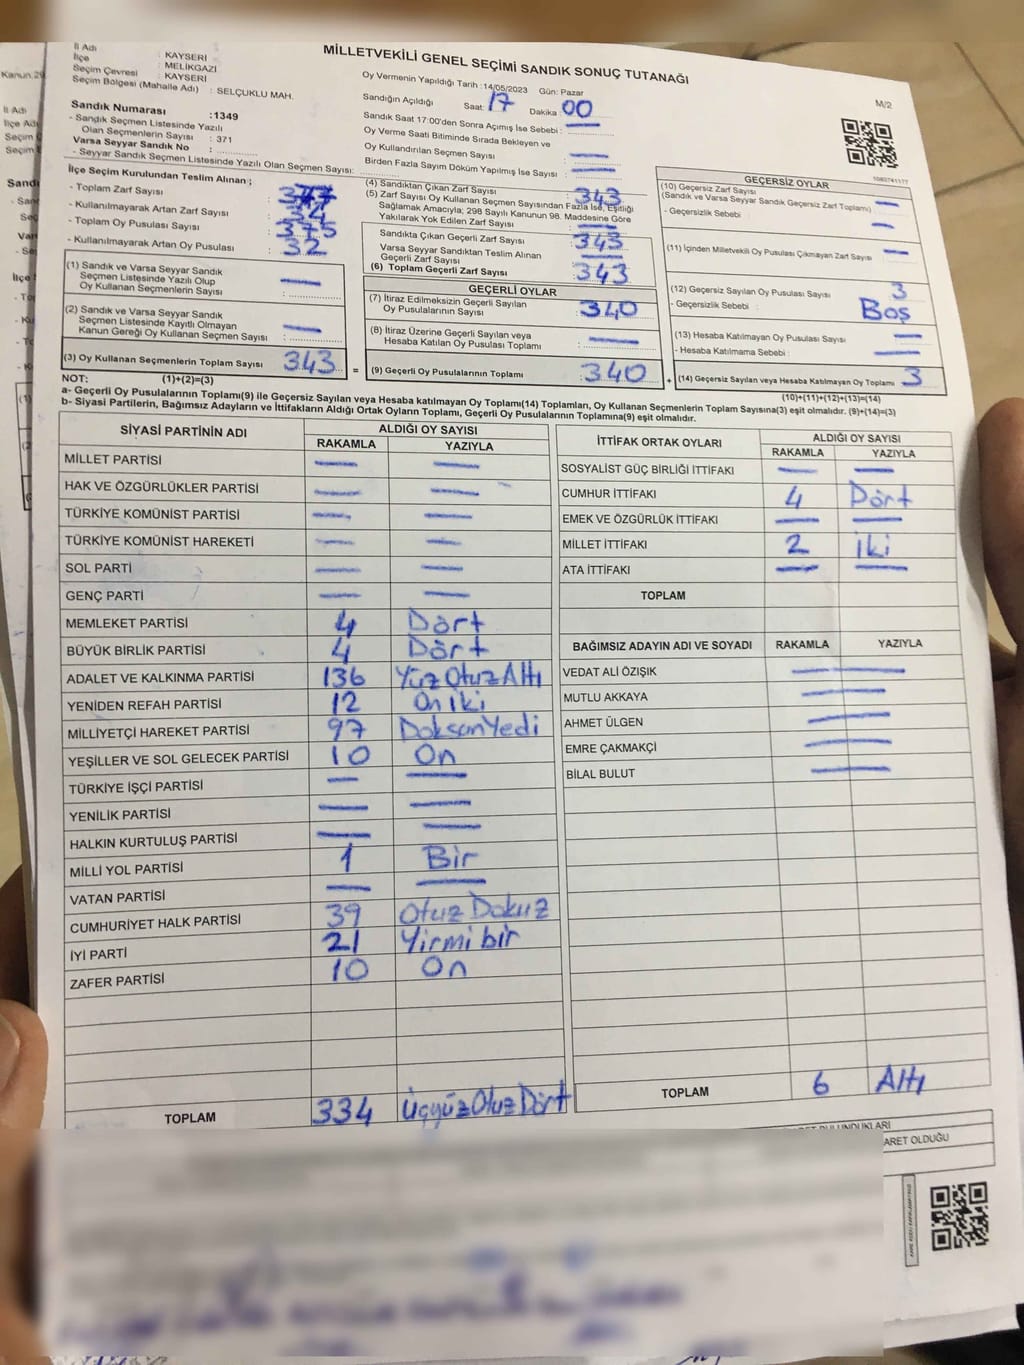 MİLLETVEKİLİ GENEL SEÇİMİ SANDIK SONUÇ TUTANAĞI
M/2
İl Adı : KAYSERİ
İlçe : MELİKGAZİ
Seçim Çevresi : KAYSERİ
Seçim Bölgesi (Mahalle Adı) : SELÇUKLU MAH.
Sandık Numarası : 1349
- Sandık Seçmen Listesinde Yazılı
Olan Seçmenlerin Sayısı : 371
Varsa Seyyar Sandık No :
- Seyyar Sandık Seçmen Listesinde Yazılı Olan Seçmen Sayısı:
Oy Vermenin Yapıldığı Tarih : 14/05/2023 Gün: Pazar
Sandığın Açıldığı Saat: 17 Dakika 00
Sandık Saat 17:00'den Sonra Açılmış İse Sebebi :
Oy Verme Saati Bitiminde Sırada Bekleyen ve
Oy Kullandırılan Seçmen Sayısı
Birden Fazla Sayım Döküm Yapılmış İse Sayısı :
İlçe Seçim Kurulundan Teslim Alınan ;
- Toplam Zarf Sayısı :
- Kullanılmayarak Artan Zarf Sayısı : 34
- Toplam Oy Pusulası Sayısı : 375
- Kullanılmayarak Artan Oy Pusulası : 32
(1) Sandık ve Varsa Seyyar Sandık
Seçmen Listesinde Yazılı Olup
Oy Kullanan Seçmenlerin Sayısı :
(2) Sandık ve Varsa Seyyar Sandık
Seçmen Listesinde Kayıtlı Olmayan
Kanun Gereği Oy Kullanan Seçmen Sayısı :
(3) Oy Kullanan Seçmenlerin Toplam Sayısı 343 =
(1)+(2)=(3)
(4) Sandıktan Çıkan Zarf Sayısı : 343
(5) Zarf Sayısı Oy Kullanan Seçmen Sayısından Fazla İse, Eşitliği
Sağlamak Amacıyla; 298 Sayılı Kanunun 98. Maddesine Göre
Yakılarak Yok Edilen Zarf Sayısı :
Sandıkta Çıkan Geçerli Zarf Sayısı : 343
Varsa Seyyar Sandıktan Teslim Alınan
Geçerli Zarf Sayısı :
(6) Toplam Geçerli Zarf Sayısı : 343
GEÇERLİ OYLAR
(7) İtiraz Edilmeksizin Geçerli Sayılan
Oy Pusulalarının Sayısı : 340
(8) İtiraz Üzerine Geçerli Sayılan veya
Hesaba Katılan Oy Pusulası Toplamı :
(9) Geçerli Oy Pusulalarının Toplamı : 340 +
1083741177
GEÇERSİZ OYLAR
(10) Geçersiz Zarf Sayısı
(Sandık ve Varsa Seyyar Sandık Geçersiz Zarf Toplamı) :
- Geçersizlik Sebebi :
(11) İçinden Milletvekili Oy Pusulası Çıkmayan Zarf Sayısı :
(12) Geçersiz Sayılan Oy Pusulası Sayısı : 3
- Geçersizlik Sebebi : Boş
(13) Hesaba Katılmayan Oy Pusulası Sayısı :
- Hesaba Katılmama Sebebi :
(14) Geçersiz Sayılan veya Hesaba Katılmayan Oy Pusulası Toplamı 3
(10)+(11)+(12)+(13)=(14)
NOT:
a- Geçerli Oy Pusulalarının Toplamı(9) ile Geçersiz Sayılan veya Hesaba katılmayan Oy Pusulası Toplamı(14) Toplamları, Oy Kullanan Seçmenlerin Toplam Sayısına(3) eşit olmalıdır. (9)+(14)=(3)
b- Siyasi Partilerin, Bağımsız Adayların ve İttifakların Aldığı Ortak Oyların Toplamı, Geçerli Oy Pusulalarının Toplamına(9) eşit olmalıdır.
SİYASİ PARTİNİN ADI ALDIĞI OY SAYISI
RAKAMLA YAZIYLA
MİLLET PARTİSİ
HAK VE ÖZGÜRLÜKLER PARTİSİ
TÜRKİYE KOMÜNİST PARTİSİ
TÜRKİYE KOMÜNİST HAREKETİ
SOL PARTİ
GENÇ PARTİ
MEMLEKET PARTİSİ 4 Dört
BÜYÜK BİRLİK PARTİSİ 4 Dört
ADALET VE KALKINMA PARTİSİ 136 Yüz Otuz Altı
YENİDEN REFAH PARTİSİ 12 On iki
MİLLİYETÇİ HAREKET PARTİSİ 97 Doksan Yedi
YEŞİLLER VE SOL GELECEK PARTİSİ 10 On
TÜRKİYE İŞÇİ PARTİSİ
YENİLİK PARTİSİ
HALKIN KURTULUŞ PARTİSİ
MİLLİ YOL PARTİSİ 1 Bir
VATAN PARTİSİ
CUMHURİYET HALK PARTİSİ 39 Otuz Dokuz
İYİ PARTİ 21 Yirmi bir
ZAFER PARTİSİ 10 On
TOPLAM 334 Üçyüz Otuz Dört
İTTİFAK ORTAK OYLARI ALDIĞI OY SAYISI
RAKAMLA YAZIYLA
SOSYALİST GÜÇ BİRLİĞİ İTTİFAKI
CUMHUR İTTİFAKI 4 Dört
EMEK VE ÖZGÜRLÜK İTTİFAKI
MİLLET İTTİFAKI 2 İki
ATA İTTİFAKI
TOPLAM
BAĞIMSIZ ADAYIN ADI VE SOYADI RAKAMLA YAZIYLA
VEDAT ALİ ÖZIŞIK
MUTLU AKKAYA
AHMET ÜLGEN
EMRE ÇAKMAKÇİ
BİLAL BULUT
TOPLAM 6 Altı
ARET OLDUĞU